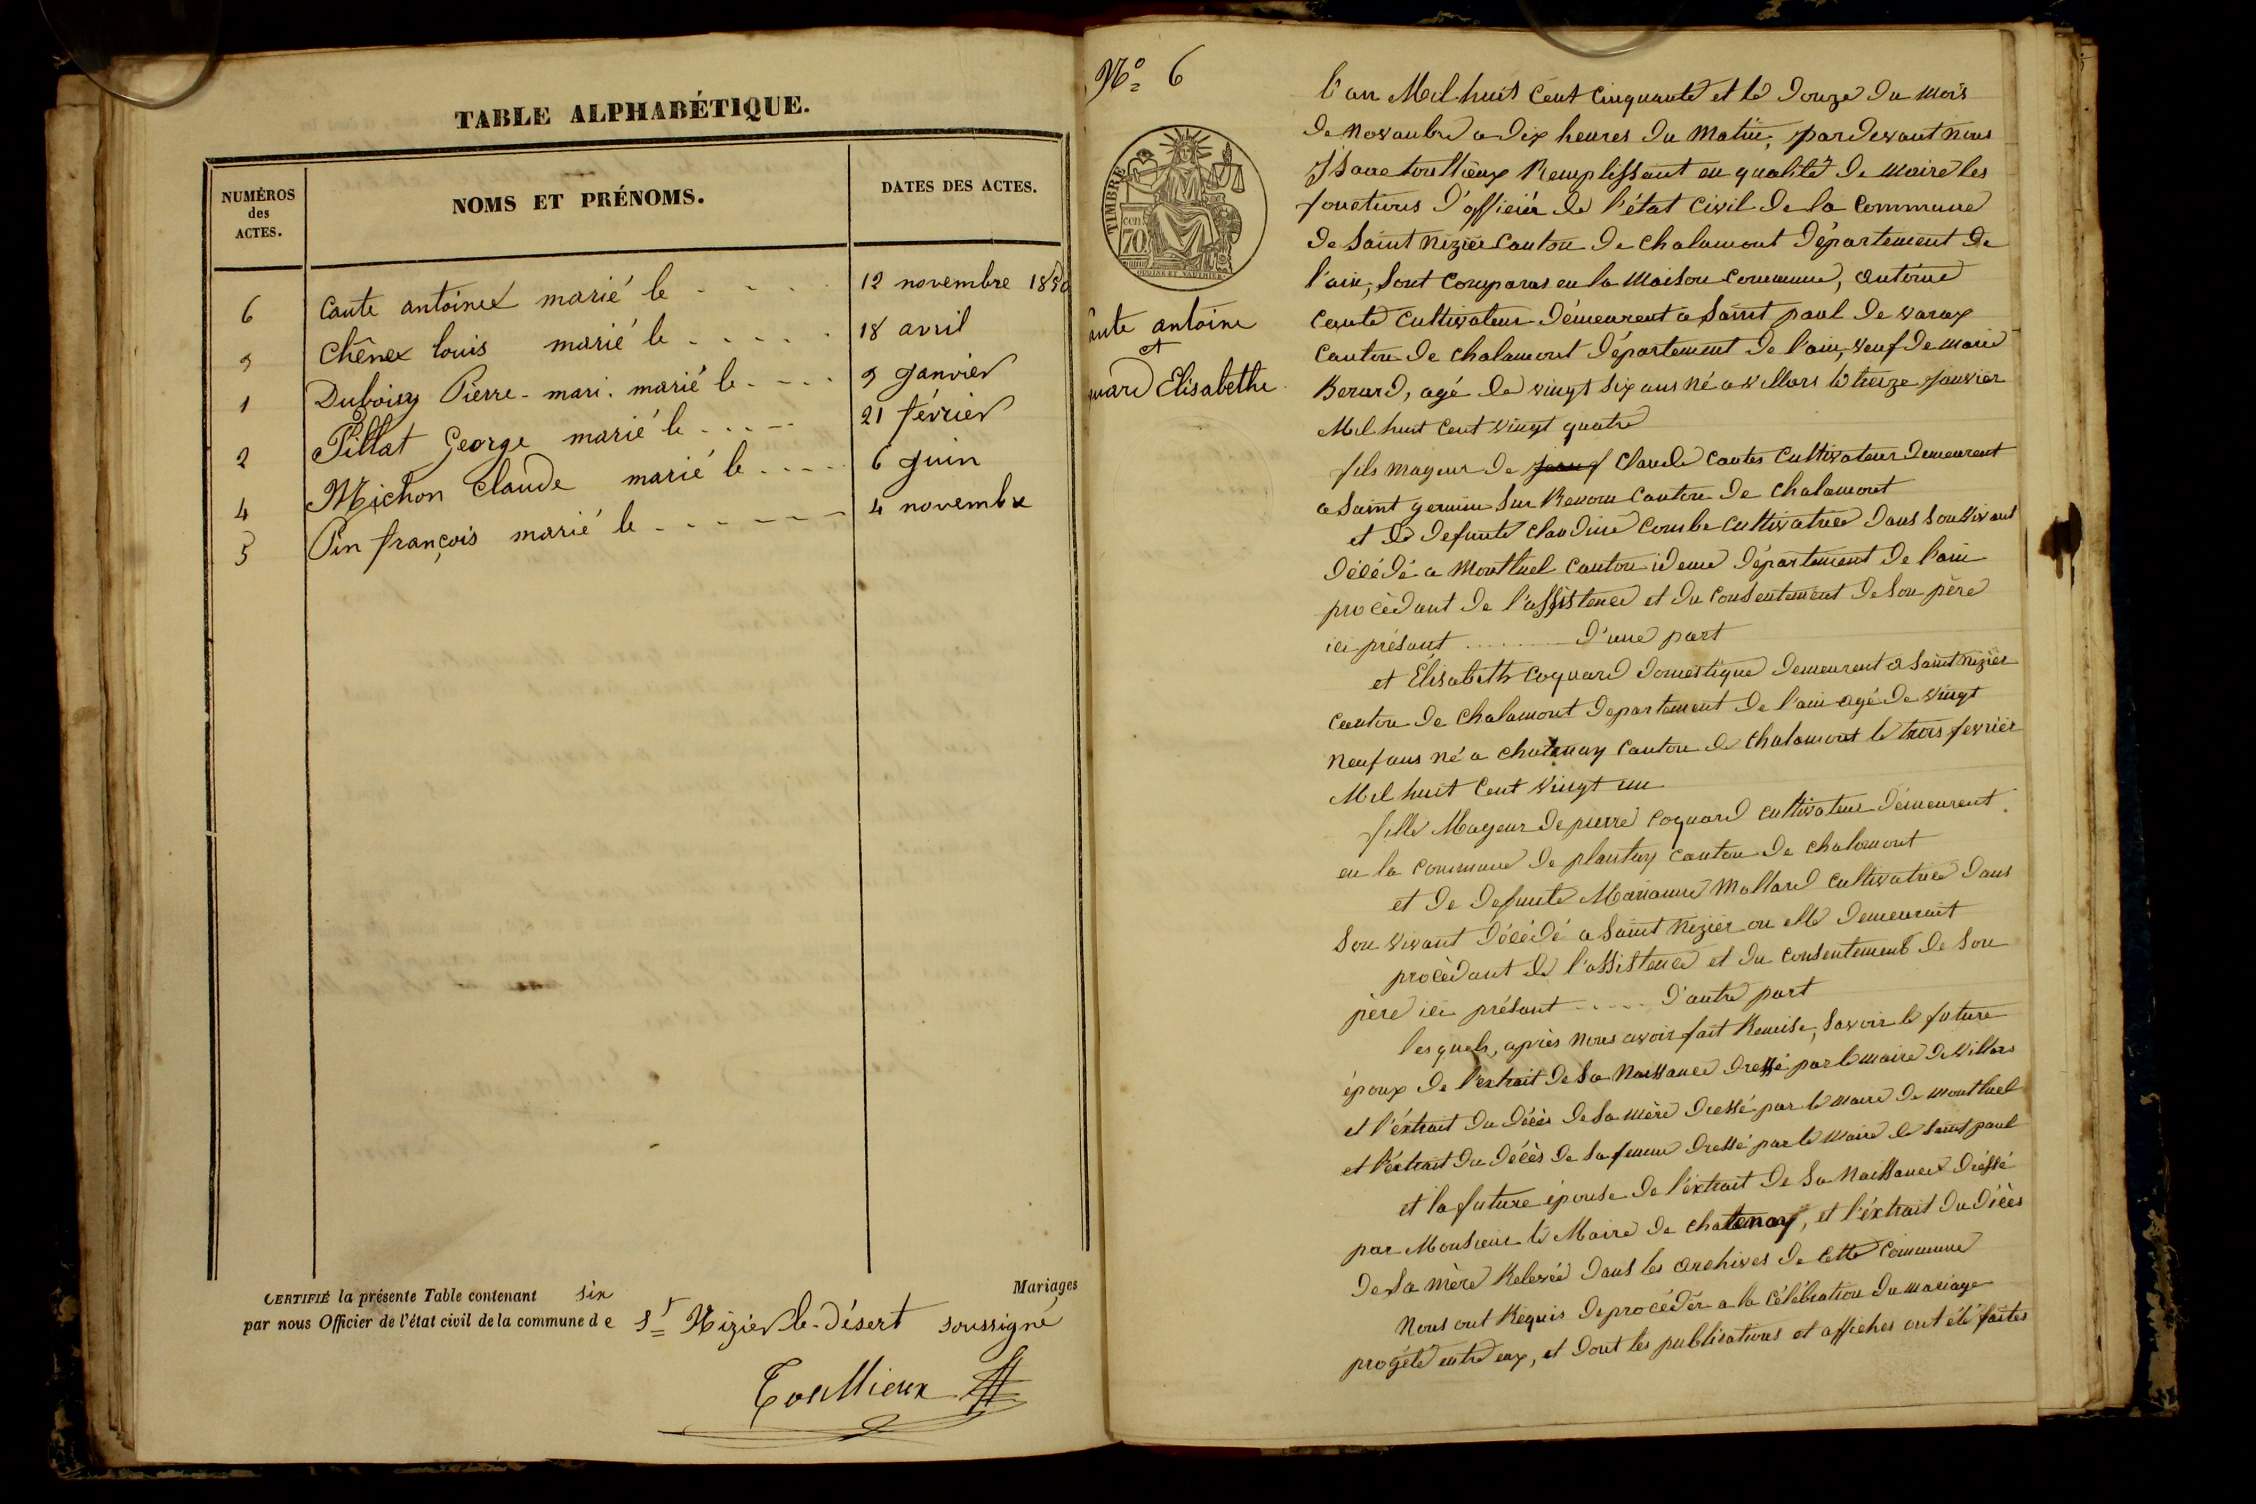 TABLE ALPHABÉTIQUE.
NUMÉROS des ACTES.
NOMS ET PRÉNOMS.
DATES DES ACTES.
6 Caute antoine marié le - - - - 12 novembre 1850
3 Chênex louis marié le - - - - - 18 avril
1 Duboisy Pierre - mari. marié le - - - - 9 janvier
2 Pillat George marié le - - - - 21 février
4 Michon Claude marié le - - - - - 6 juin
5 Pin françois marié le - - - - - - 4 novembre
CERTIFIÉ la présente Table contenant six Mariages
par nous Officier de l'état civil de la commune de St Nizier le-désert soussigné
Toullieux
No 6
TIMBRE
cen. 70
aute antoine
et
quard Elisabethe
l'an Mil huit Cent Cinquante et le Douze Du mois
De Novanbre a Dix heures Du Matin, par devant nous
Toullieux Remplissant en qualité De maire les
fonctions D'officier De l'état Civil De la Commune
De Saint Nizier Canton De Chalamont Département De
l'ain, Sont Comparus en la Maison Commune, antoine
Caute Cultivateur Demeurent a Saint paul De varax
Canton De Chalamont Département De l'ain, veuf De marie
Berard, agé De vingt Six ans Né a villars le treize Janvier
Mil huit Cent vingt quatre
fils mageur De Claude Cautes Cultivateur Demeurent
a Saint germin Sur Renom Canton De Chalamont
et De Defunte Claudine Combe Cultivatrice Dans Son vivant
Décédé a Montluel Canton ideme Département De l'ain
procèdant De l'assistence et Du Consentement De Son père
ici présant ........ D'une part
et Élisabeth Coquard Domestique Demeurent a Saint Nizier
Canton De Chalamont Departement De l'ain agé De vingt
Neuf ans né a Chatenay Canton De Chalamont le trois fevrier
Mil huit Cent vingt un
fille Mageur De pierre Coquard Cultivateur Demeurent
en la Commune De plantay Canton De Chalamont
et De Defunte Marianne Mallard Cultivatrice Dans
Son vivant Décédé a Saint Nizier ou elle Demeurait
procèdant De l'assistence et Du Consentement De Son
père ici présant ----- D'autre part
les quels, après Nous avoir fait Remise, Savoir le future
époux De l'extrait De Sa Naissance Dressé par le maire De villars
et l'éxtrait Du Décès De Sa mère Dressé par le maire De montluel
et l'éxtrait Du Décès De Sa femme Dressé par le Maire De Saint paul
et la future épouse De l'éxtrait De Sa Naissance Dréssé
par Monsieur le Maire De Chatenay, et l'éxtrait Du Décès
De Sa mère Relevée Dans les archives De Cette Commune
Nous ont Requis De procéder a la Célébration Du mariage
progété entre eux, et Dont les publications et affiches ont été faites